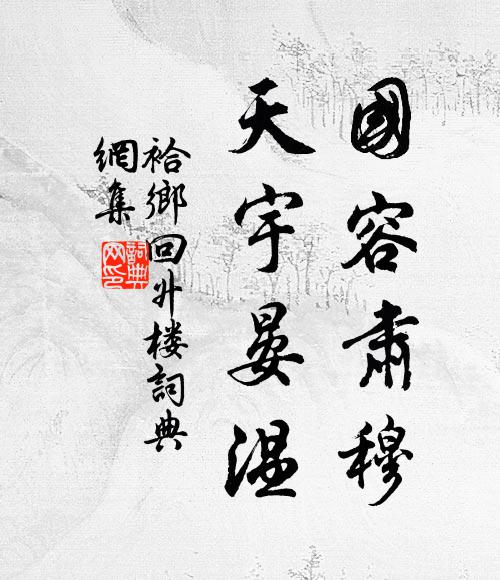 國容肅穆
天宇晏温
袷鄉回廾楼詞典
網集
詞典
网印